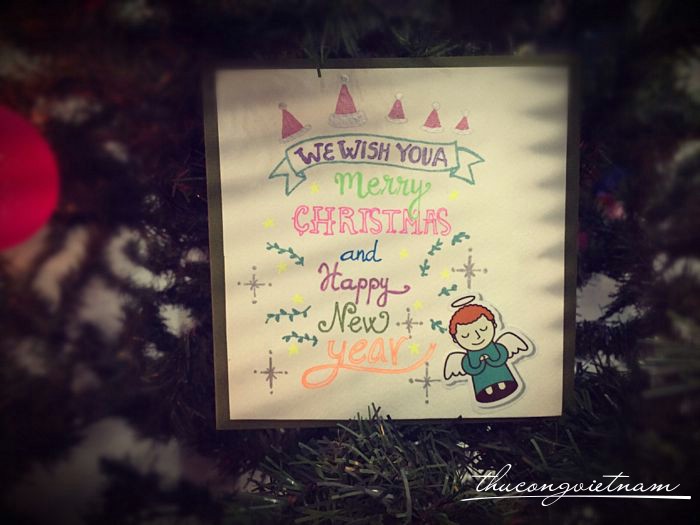 WE WISH YOU A
Merry
CHRISTMAS
and
Happy
New
year
thucongvietnam